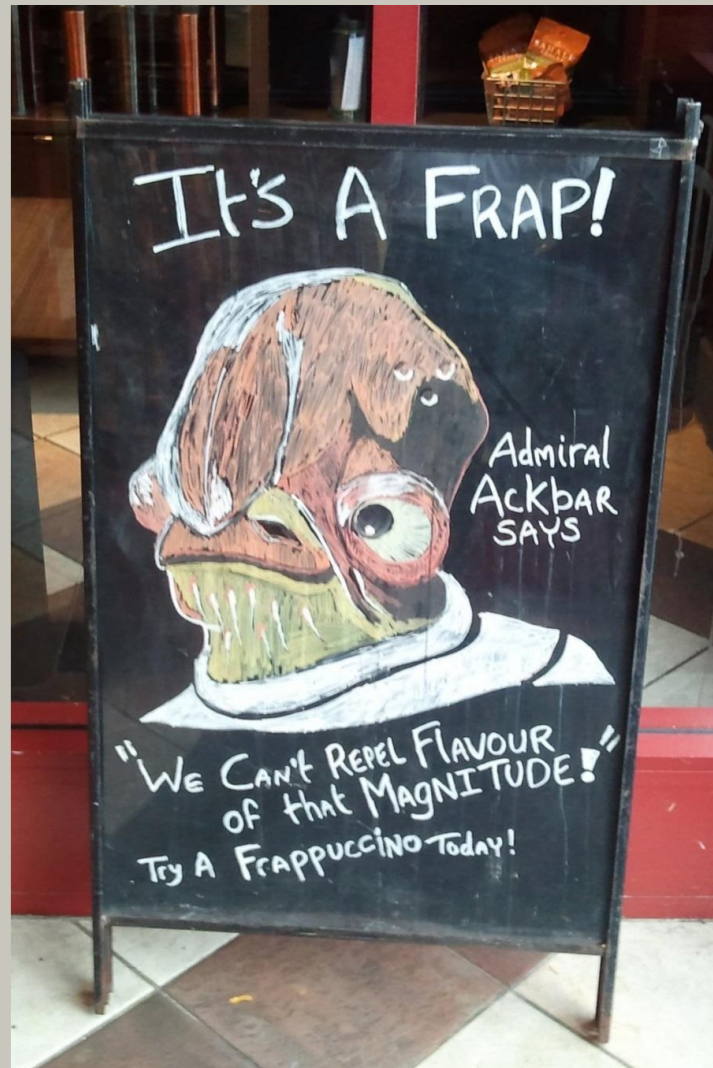 It's A FRAP!
Admiral
Ackbar
SAYS
"We Can't Repel Flavour
of that Magnitude!"
Try A Frappuccino Today!
SAHALE